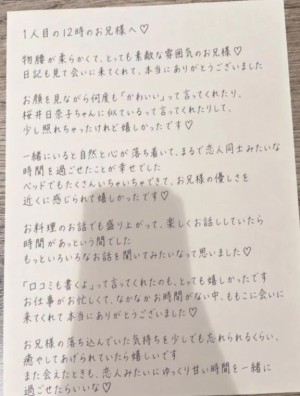 1人目の12時のお兄様へ♡
物腰が柔らかくて、とても素敵な雰囲気のお兄様♡
日記も見て会いに来てくれて、本当にありがとうございました
お顔を見ながら何度も「かわいい」って言ってくれたり、
桜井日奈子ちゃんに似ているって言ってくれたりして、
少し照れちゃったけど嬉しかったです♡
一緒にいると自然と心が落ち着いて、まるで恋人同士みたいな
時間を過ごせたことが幸せでした
ベッドでもたくさんいちゃいちゃできて、お兄様の優しさを
近くに感じられて嬉しかったです♡
お料理のお話でも盛り上がって、楽しくお話ししていたら
時間があっという間でした
もっといろいろなお話を聞いてみたいなって思いました♡
「口コミも書くよ」って言ってくれたのも、とても嬉しかったです
お仕事がお忙しくて、なかなかお時間がない中、ももこに会いに
来てくれて本当にありがとうございました♡
お兄様の落ち込んでいた気持ちを少しでも忘れられるくらい、
癒やしてあげられていたら嬉しいです
また会えたときも、恋人みたいにゆっくり甘い時間を一緒に
過ごせたらいいな♡